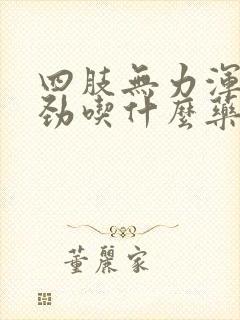 四肢無力渾
勁喫什麼藥
董麗家